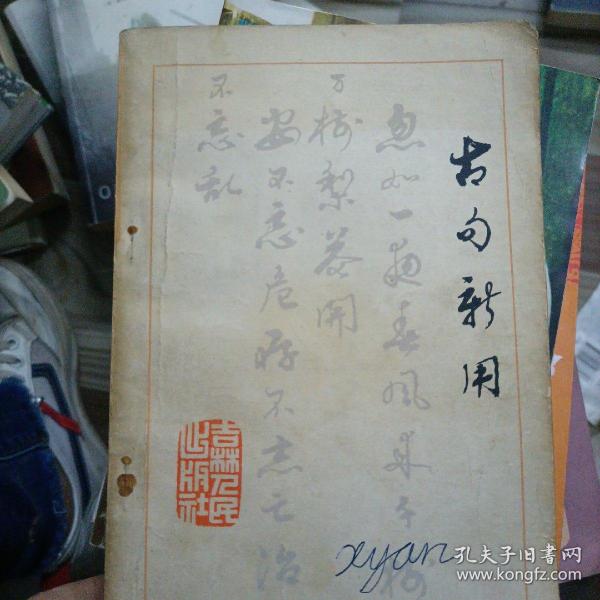 古句新用
忽如一夜春风来千树
万树梨花开
安不忘危存不忘亡治
不忘乱
吉林人民
出版社
xyan
孔夫子旧书网
www.kongfz.com